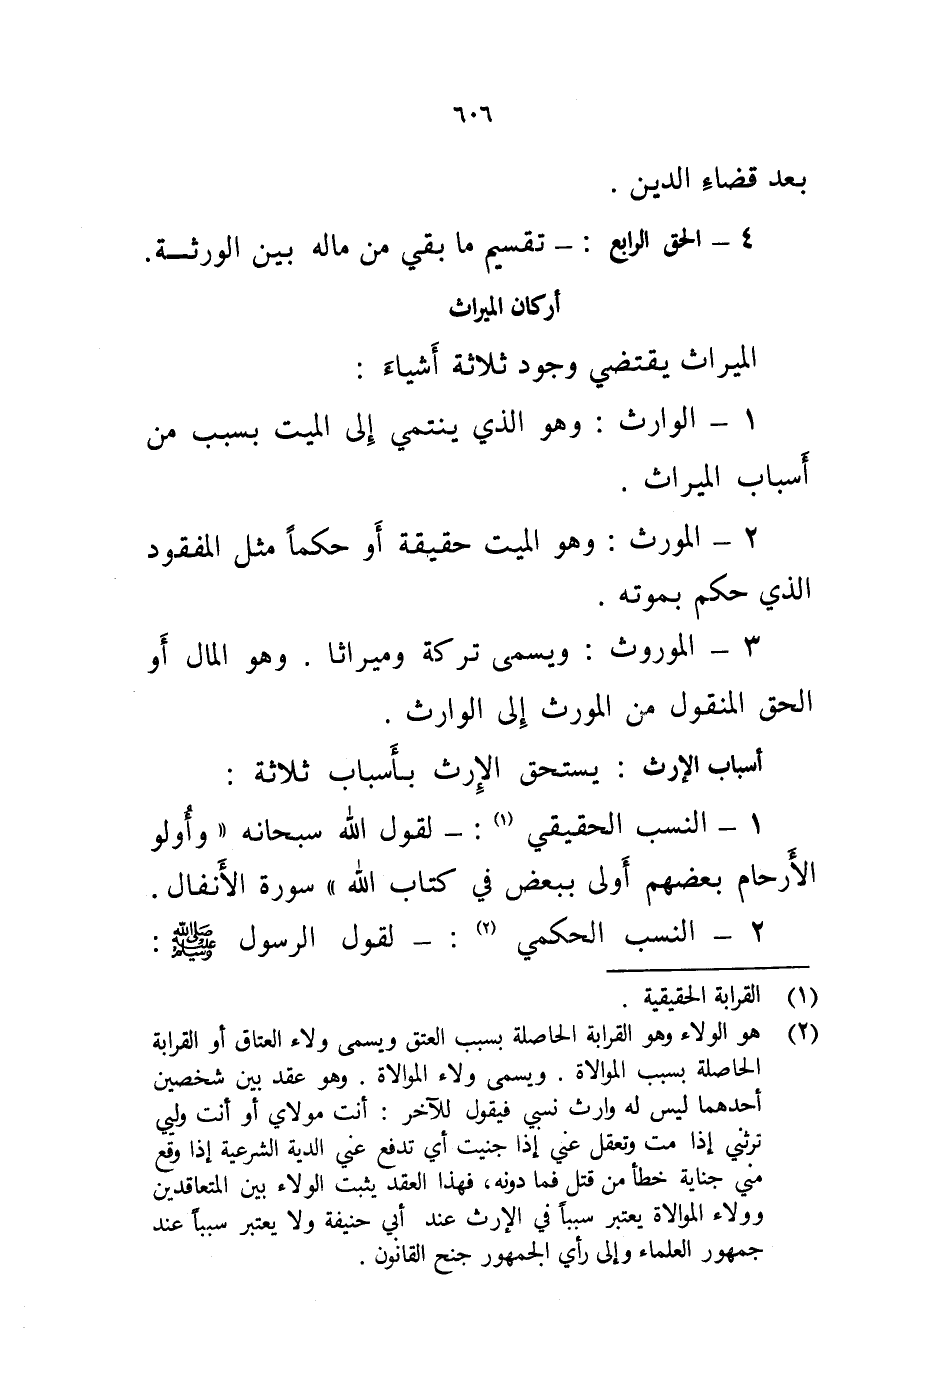 ٦٠٦
بعد قضاءِ الدين .
٤ ــ الحق الرابع : ــ تقسيم ما بقي من ماله بين الورثـــة.
أركان الميراث
الميراث يقتضي وجود ثلاثة أَشياءَ :
١ ــ الوارث : وهو الذي ينتمي إلى الميت بسبب من
أَسباب الميراث .
٢ ــ المورث : وهو الميت حقيقة أَو حكماً مثل المفقود
الذي حكم بموته .
٣ ــ الموروث : ويسمى تركة وميراثا . وهو المال أَو
الحق المنقول من المورث إلى الوارث .
أسباب الإرث : يستحق الإِرث بـأَسباب ثلاثة :
١ ــ النسب الحقيقي (١) : ــ لقول الله سبحانه « وأُولو
الأَرحام بعضهم أَولى ببعض في كتاب الله » سورة الأَنفال .
٢ ــ النسب الحكمي (٢) : ــ لقول الرسول ﷺ :
(١) القرابة الحقيقية .
(٢) هو الولاء وهو القرابة الحاصلة بسبب العتق ويسمى ولاء العتاق أو القرابة
الحاصلة بسبب الموالاة . ويسمى ولاء الموالاة . وهو عقد بين شخصين
أحدهما ليس له وارث نسبي فيقول للآخر : أنت مولاي أو أنت وليي
ترثني إذا مت وتعقل عني إذا جنيت أي تدفع عني الدية الشرعية إذا وقع
مني جناية خطأ من قتل فما دونه، فهذا العقد يثبت الولاء بين المتعاقدين
وولاء الموالاة يعتبر سبباً في الإرث عند أبي حنيفة ولا يعتبر سبباً عند
جمهور العلماء وإلى رأي الجمهور جنح القانون .